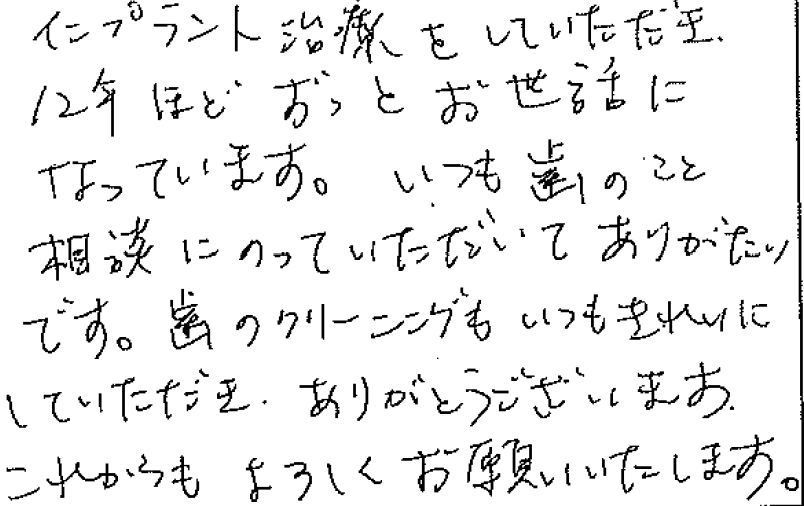 インプラント治療をしていただき、
12年ほど ずっと お世話に
なっています。 いつも歯のこと
相談にのっていただいて ありがたい
です。歯のクリーニングも いつもきれいに
していただき、ありがとうございます。
これからも よろしく お願いいたします。